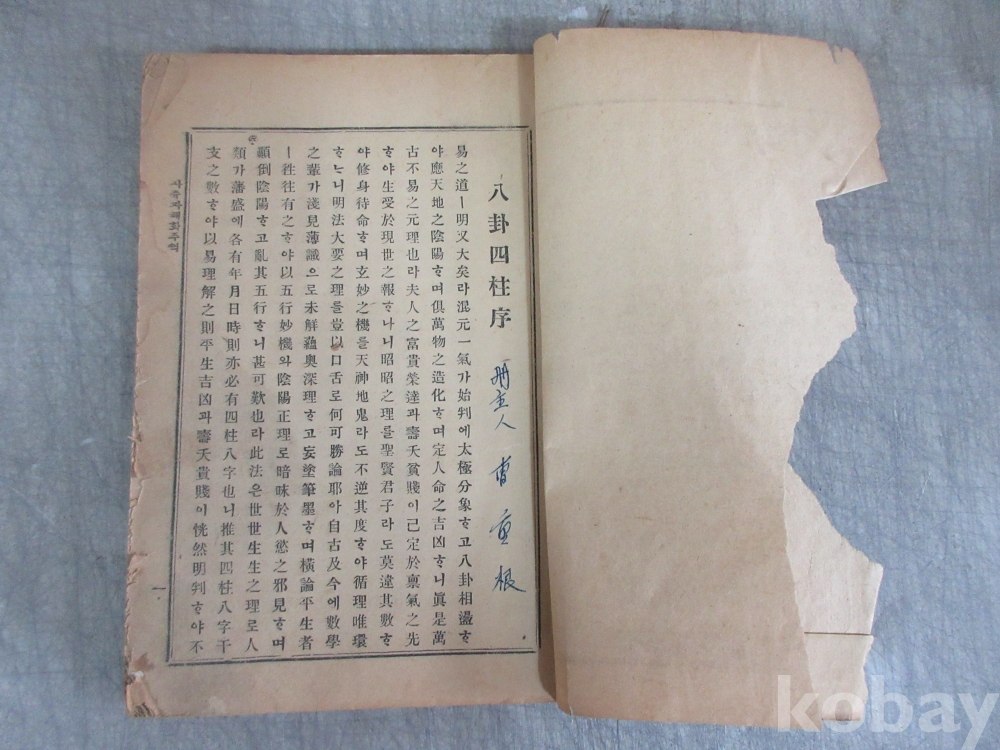 八卦四柱序
冊主人 曺重根
易之道ㅣ明又大矣라混元一氣가始判에太極分象ᄒᆞ고八卦相盪ᄒᆞ
야應天地之陰陽ᄒᆞ며俱萬物之造化ᄒᆞ며定人命之吉凶ᄒᆞ니眞是萬
古不易之元理也라夫人之富貴榮達과壽夭貧賤이已定於禀氣之先
ᄒᆞ야生受於現世之報ᄒᆞ나니昭昭之理를聖賢君子라도莫違其數ᄒᆞ
야修身待命ᄒᆞ며玄妙之機를天神地鬼라도不逆其度ᄒᆞ야循理唯環
ᄒᆞᄂᆞ니明法大要之理를豈以口舌로何可勝論耶아自古及今에數學
之輩가淺見薄識으로未解蘊奧深理ᄒᆞ고妄塗筆墨ᄒᆞ며橫論平生者
ㅣ徃徃有之ᄒᆞ야以五行妙機와陰陽正理로暗昧於人慾之邪見ᄒᆞ며
顚倒陰陽ᄒᆞ고亂其五行ᄒᆞ니甚可歎也라此法은世世生生之理로人
類가藩盛에各有年月日時則亦必有四柱八字也니推其四柱八字干
支之數ᄒᆞ야以易理解之則平生吉凶과壽夭貴賤이恍然明判ᄒᆞ야不
一
kobay